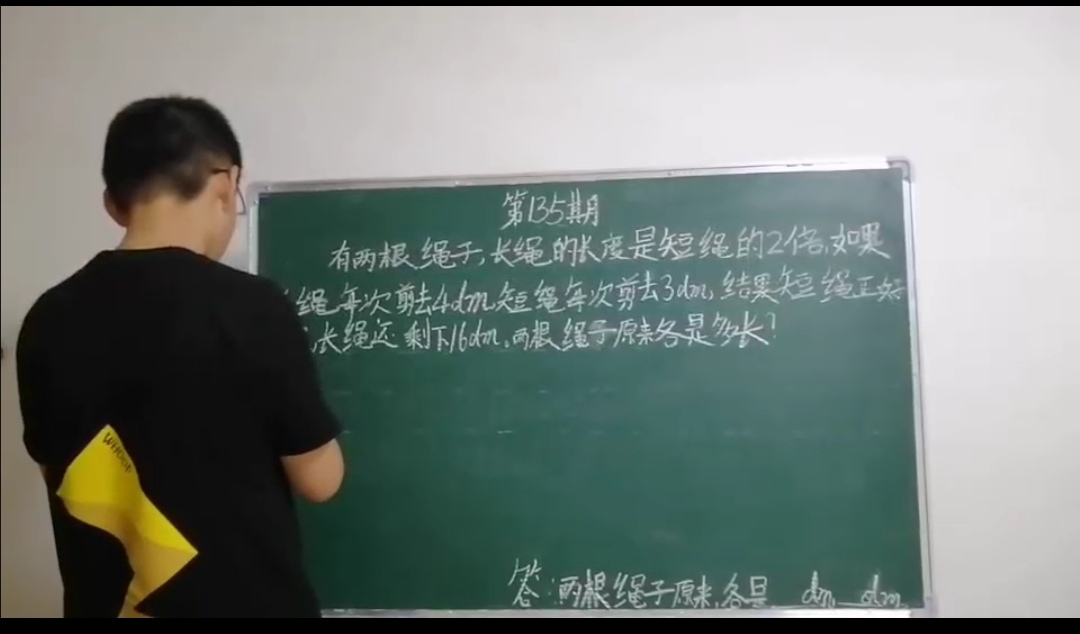 第135期
有两根绳子,长绳的长度是短绳的2倍,如果
绳每次剪去4dm,短绳每次剪去3dm,结果短绳正好
,长绳还剩下16dm,两根绳子原来各是多长?
答:两根绳子原来,各是 dm, dm